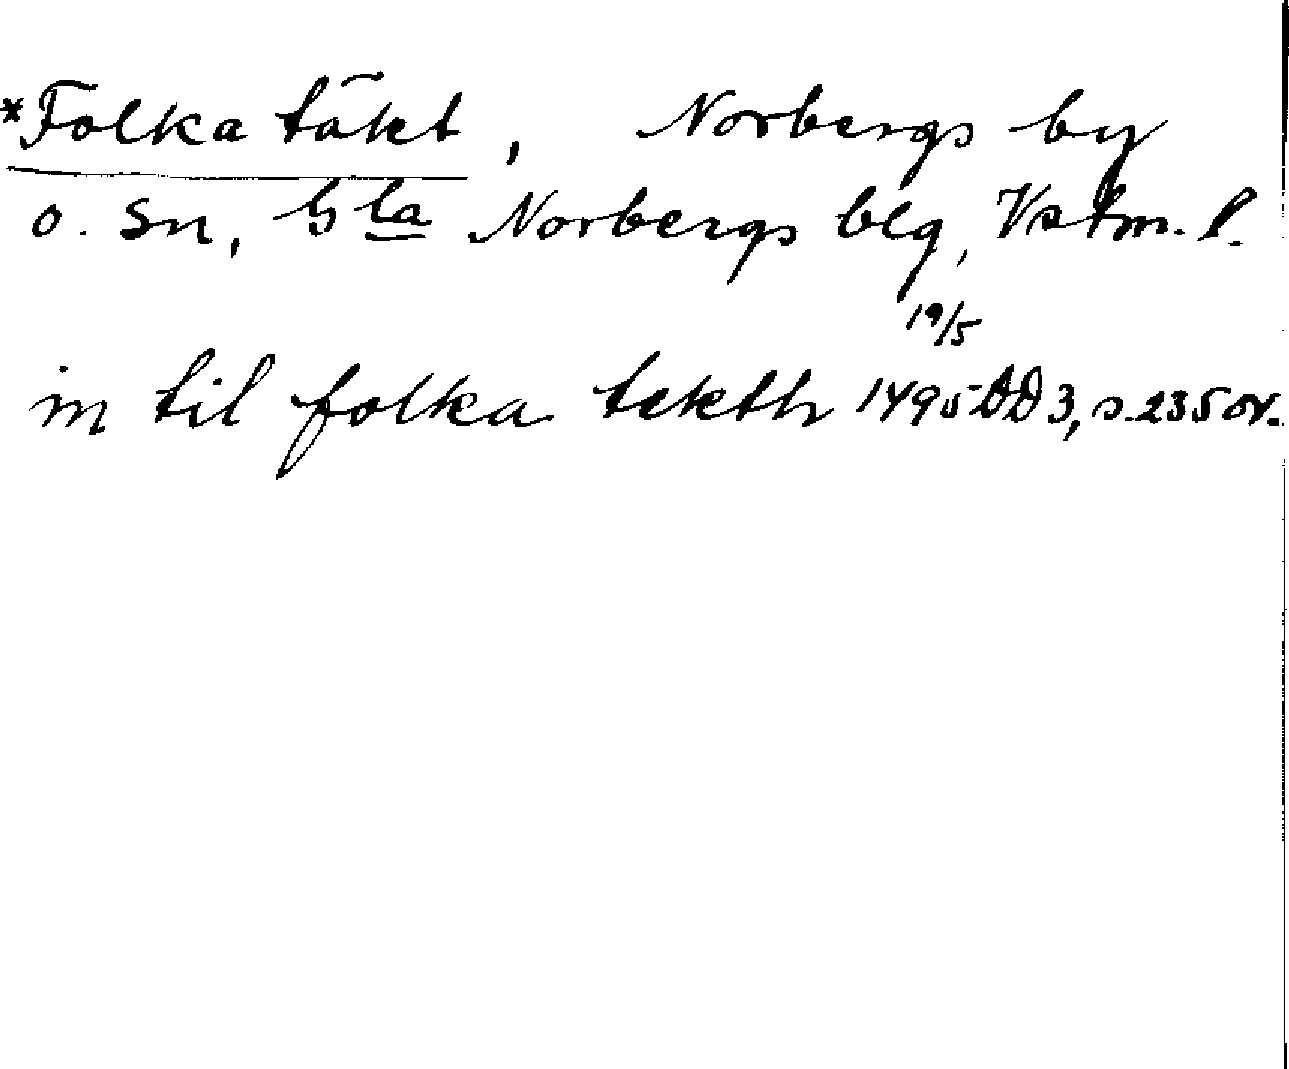 *Folka täkt, Norbergs by
o. sn, Gla Norbergs blg, Vstm. l.
19/5
in til folka tekth 1495 DD 3, s. 235 or.